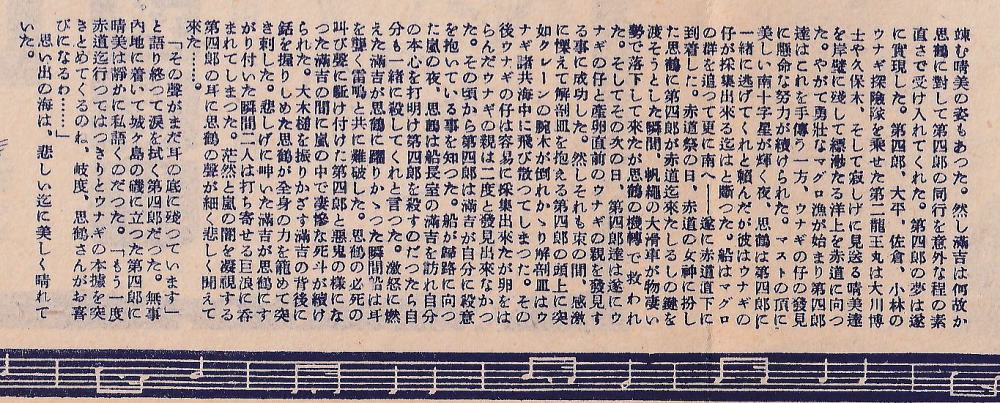 竦む晴美の姿もあつた。然し滿吉は何故か
思鶴に對して第四郎の同行を意外な程の素
直さで受け入れてくれた。第四郎の夢は遂
に實現した。第四郎、大平、佐倉、小林の
ウナギ探險隊を乘せた第二龍王丸は大川博
士や久保木、そして寂しげに見送る晴美達
を岸壁に殘して縹渺たる洋上を赤道に向つ
た。やがて勇壯なマグロ漁が始まり第四郎
達はこれを手傳う一方、ウナギの仔の發見
に懸命な努力が續けられた。マストの頂に
美しい南十字星が輝く夜、思鶴は第四郎に
一緒に逃げてくれと賴んだが彼はウナギの
仔が採集出來る迄はと斷つた。船はマグロ
の群を追つて更に南へ――遂に赤道直下に
到着した。赤道祭の日、赤道の女神に扮し
た思鶴に第四郎が赤道迄來たしるしの鍵を
渡そうとした瞬間、帆繩の大滑車が物凄い
勢で落下して來たが思鶴の機轉で救われ
た。そしてその次の日、第四郎達は遂にウ
ナギの仔と產卵直前のウナギの親を發見す
る事に成功した。然しそれも束の間、感激
に慄えて解剖皿を抱える第四郎の頭上に突
如クレーンの腕木が倒れかゝり解剖皿はウ
ナギ諸共海中に飛び散つてしまつた。その
後ウナギの仔は容易に採集出來たが卵をは
らんだウナギの親は二度と發見出來なかつ
た。その頃から第四郎は滿吉が自分に殺意
を抱いている事を知つた。船が歸路に向つ
た嵐の夜、思鶴は船長室の滿吉を訪れ自分
の本心を打明け第四郎を殺すのだつたら自
分も一緒に殺してくれと言つた。激怒に燃
えた滿吉が思鶴に躍りかゝつた瞬間船は耳
を聾く雷鳴と共に難破した。思鶴の必死の
叫び聲に駈け付けた第四郎と惡鬼の樣にな
つた滿吉の間に嵐の中で凄慘な死斗が續け
られた。大木槌を振りかざす滿吉の背後に
銛を握りしめた思鶴が全身の力を籠めて突
き刺した。悲しげに呻いた滿吉が思鶴にす
がり付いた瞬間二人は打ち寄せる巨浪に呑
まれてしまつた。茫然と嵐の闇を凝視する
第四郎の耳に思鶴の聲が細く悲しく聞えて
來た……。
「その聲がまだ耳の底に殘つています」
と語り終つて淚を拭く第四郎だつた。無事
內地に着いて城ケ島の磯に立つた第四郎に
晴美は靜かに私語くのだつた。「もう一度
赤道迄行つてはつきりとウナギの本壚を突
きとめてくるのね、岐度、思鶴さんがお喜
びになるわ……」
思い出の海は、悲しい迄に美しく晴れて
いた。